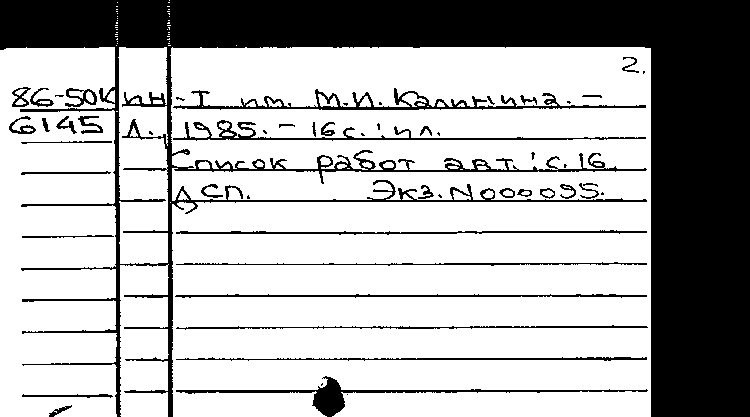 2.
86-50К ин-т им. М.И. Калинина. –
6145 Л., 1985. – 16 с. : ил.
Список работ авт.: с. 16
ДСП. Экз. N000095.